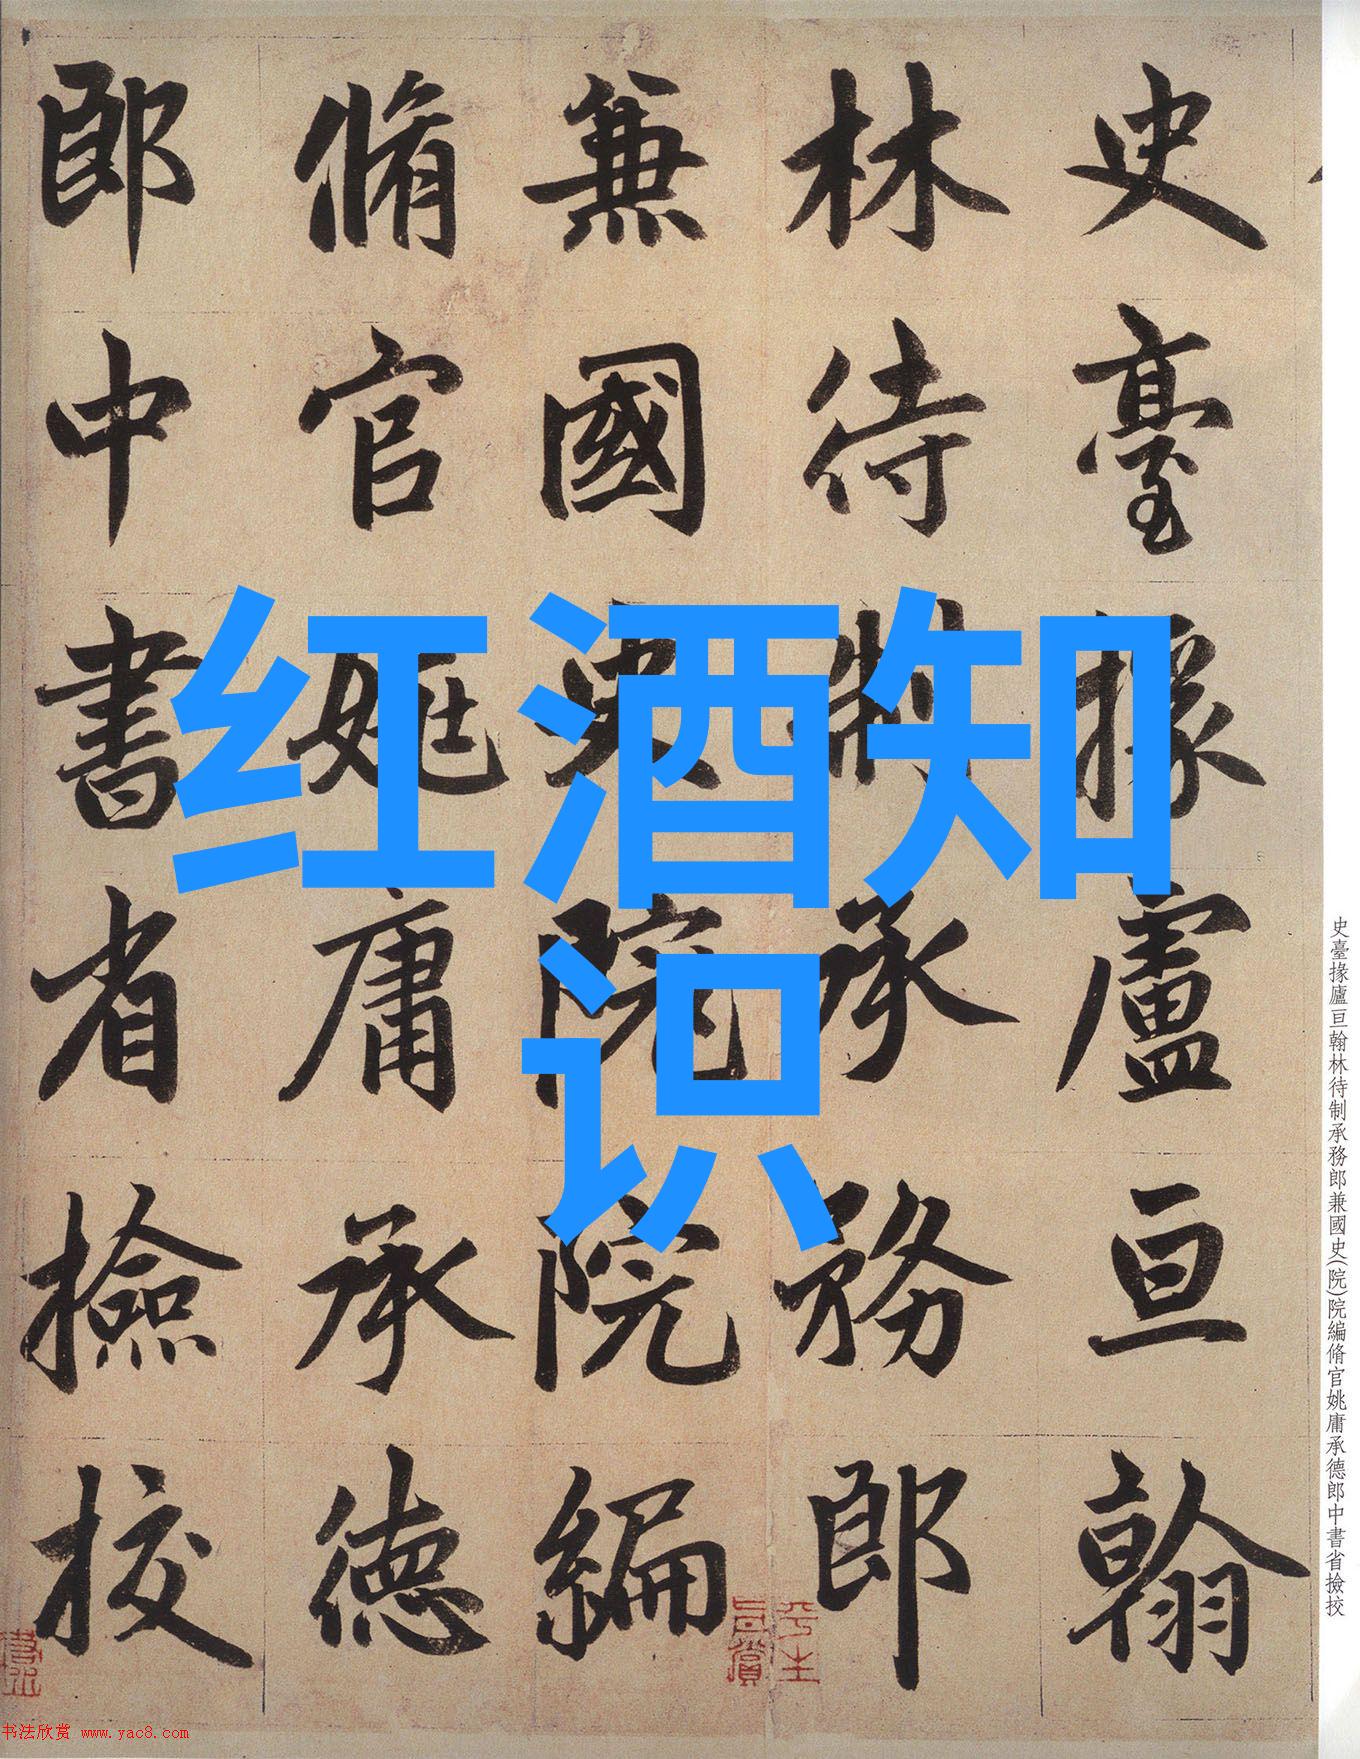 红酒知
识
史臺掾盧亘翰
林待制承務郎
兼國史院院編
脩官姚庸承德
郎中書省撿挍
史臺掾廬亘翰林待制承務郎兼國史(院)院編脩官姚庸承德郎中書省撿挍
平生
真賞
书法欣赏 www.yac8.com